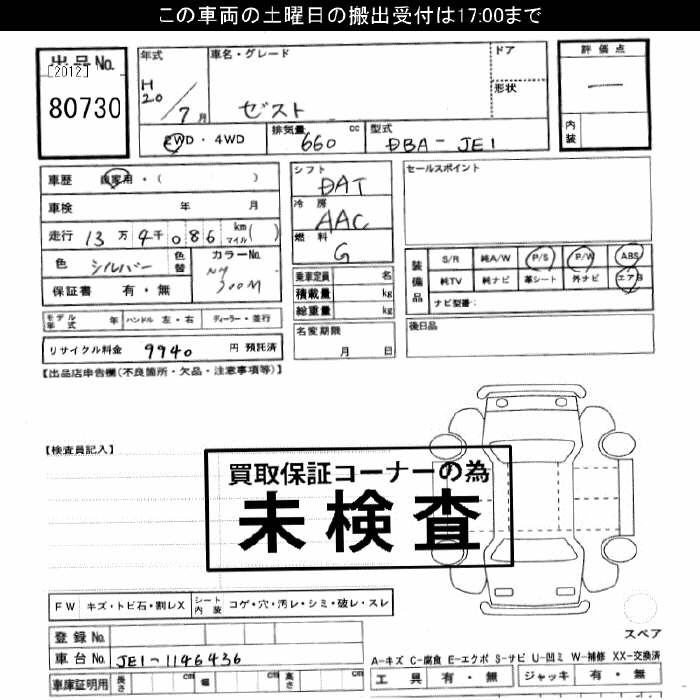 この車両の土曜日の搬出受付は17:00まで
出品No.
[2012]
80730
年式
H20/7月
車名・グレード
ゼスト
ドア
形状
評価点
一
内装
2WD・4WD
排気量 660 cc
型式 DBA-JE1
車歴 自家用・( )
車検 年 月
走行 13万4千086 km(マイル)
色 シルバー 色替
カラーNo. NH700M
保証書 有・無
シフト DAT
冷房 AAC
燃料 G
乗車定員 名
積載量 kg
総重量 kg
名変期限
月 日
セールスポイント
装備品
S/R 純A/W P/S P/W ABS
純TV 純ナビ 革シート 外ナビ エアB
ナビ型番:
後日品
モデル年式 年 ハンドル 左・右 ディーラー・並行
リサイクル料金 9940 円 預託済
【出品店申告欄(不良箇所・欠品・注意事項等)】
【検査員記入】
買取保証コーナーの為
未検査
FW キズ・トビ石・割レX シート内装 コゲ・穴・汚レ・シミ・破レ・スレ
登録No.
車台No. JE1-1146436
車庫証明用 長さ cm 幅 cm 高さ cm
スペア
A-キズ C-腐食 E-エクボ S-サビ U-凹ミ W-補修 XX-交換済
工具 有・無 ジャッキ 有・無